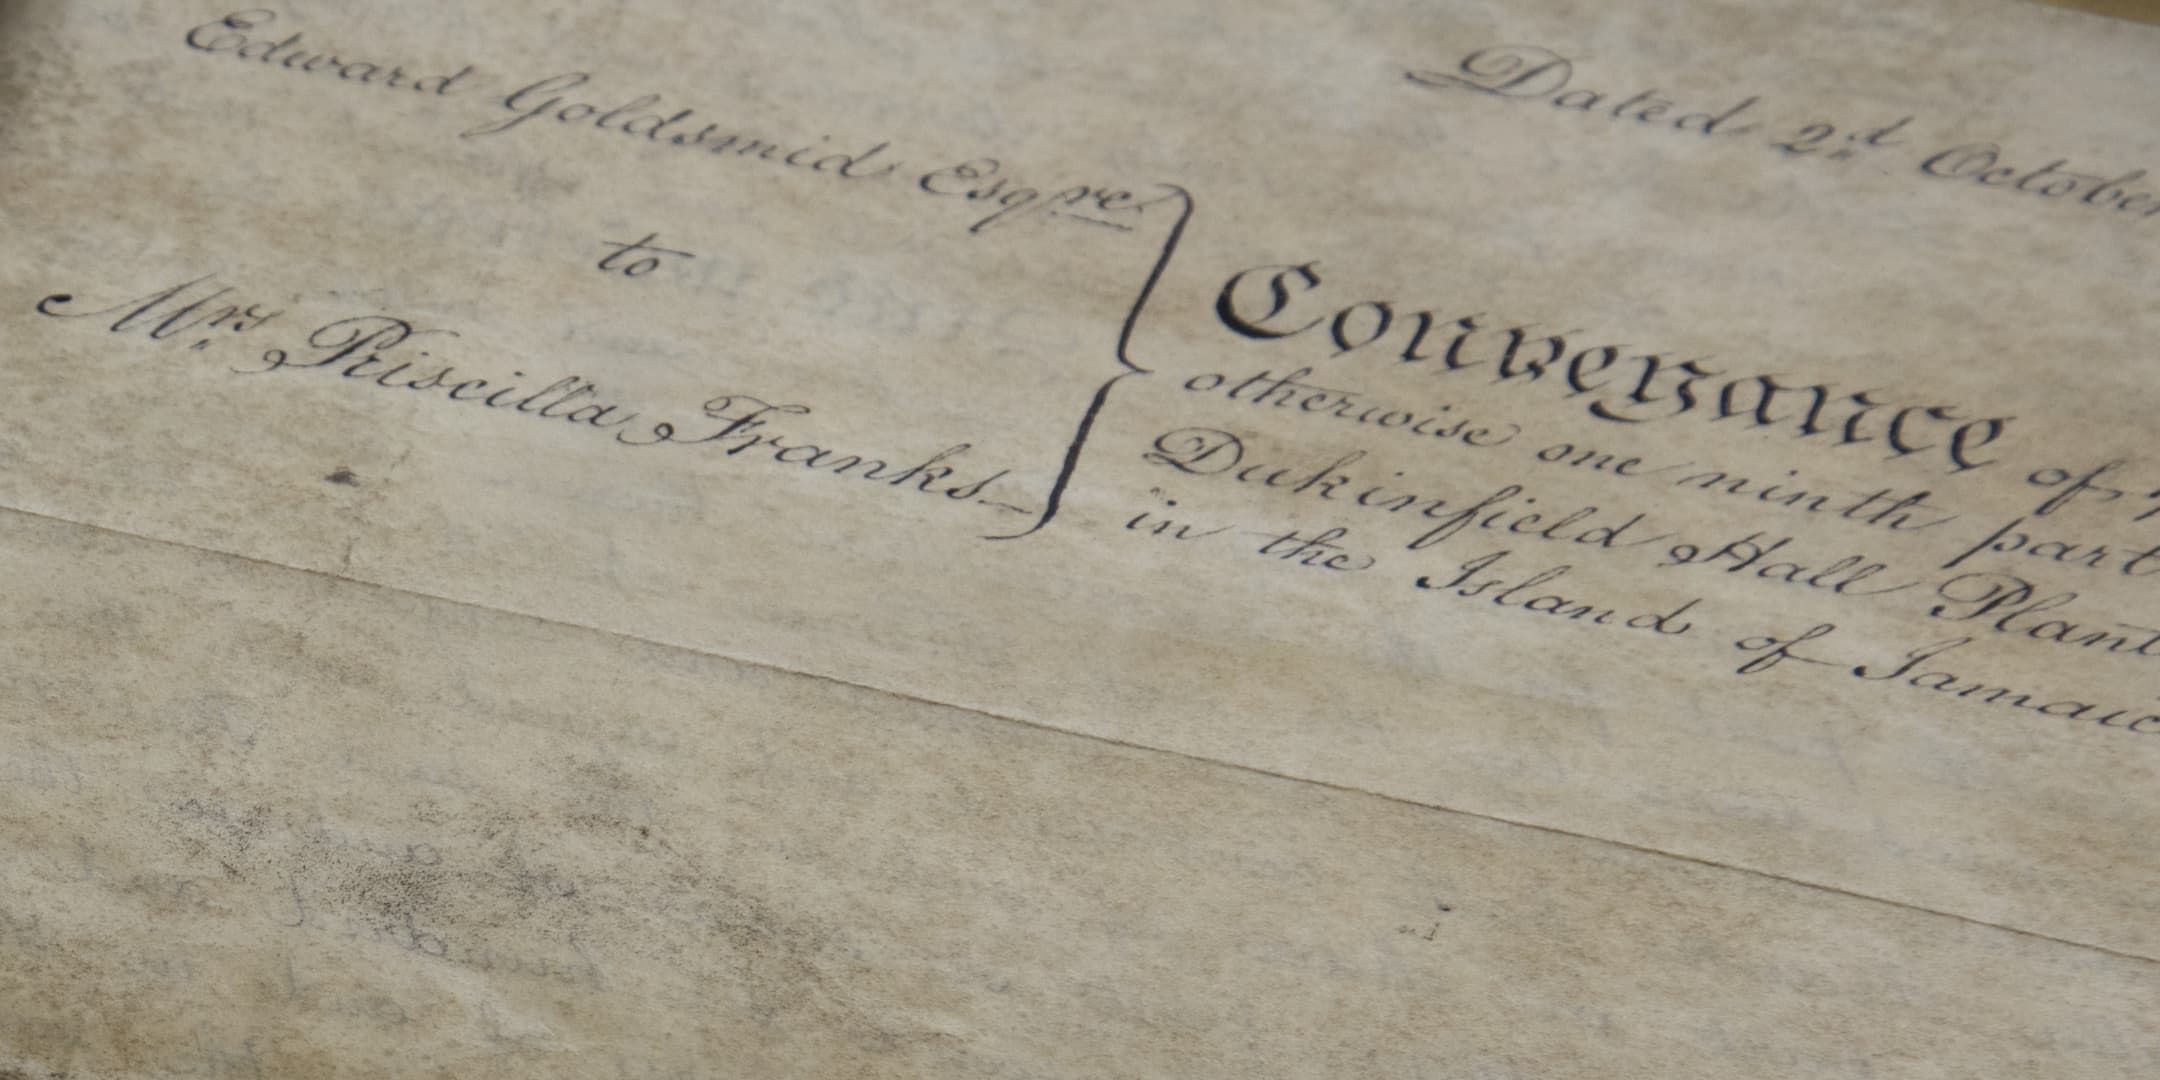 Dated 2d October
Edward Goldsmid Esqre
to
Mrs Priscilla Franks
Conveyance of
otherwise one ninth part
Dukinfield Hall
in the Island of